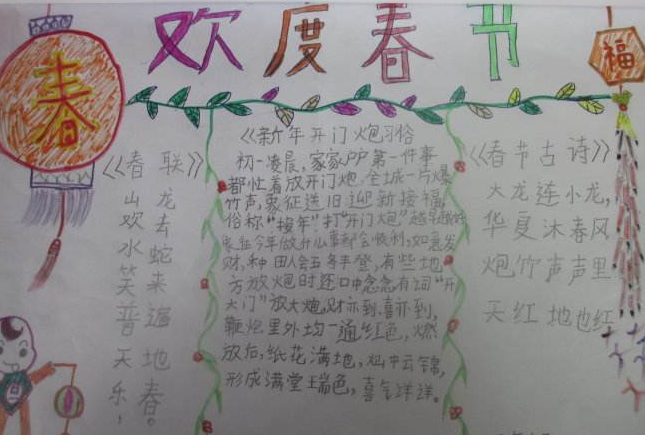 欢度春节
春
福
《春 联》
山 龙
欢 去
水 蛇
笑 来
普 遍
天 地
乐， 春。
《新年开门炮习俗
初一凌晨，家家户户第一件事
都忙着放开门炮，全城一片爆
竹声，象征送旧迎新接福，
俗称"接年"打"开门炮"越早越好
在今年做什么事都会顺利，如意发
财，种田人会五谷丰登，有些地
方放炮时还口中念念有词"开
大门"放大炮，财亦到喜亦到，
鞭炮里外均一通红色，燃
放后，纸花满地，灿中云锦，
形成满堂瑞色，喜气洋洋。
《春节古诗》
大龙连小龙，
华夏沐春风
炮竹声声里
天红地也红